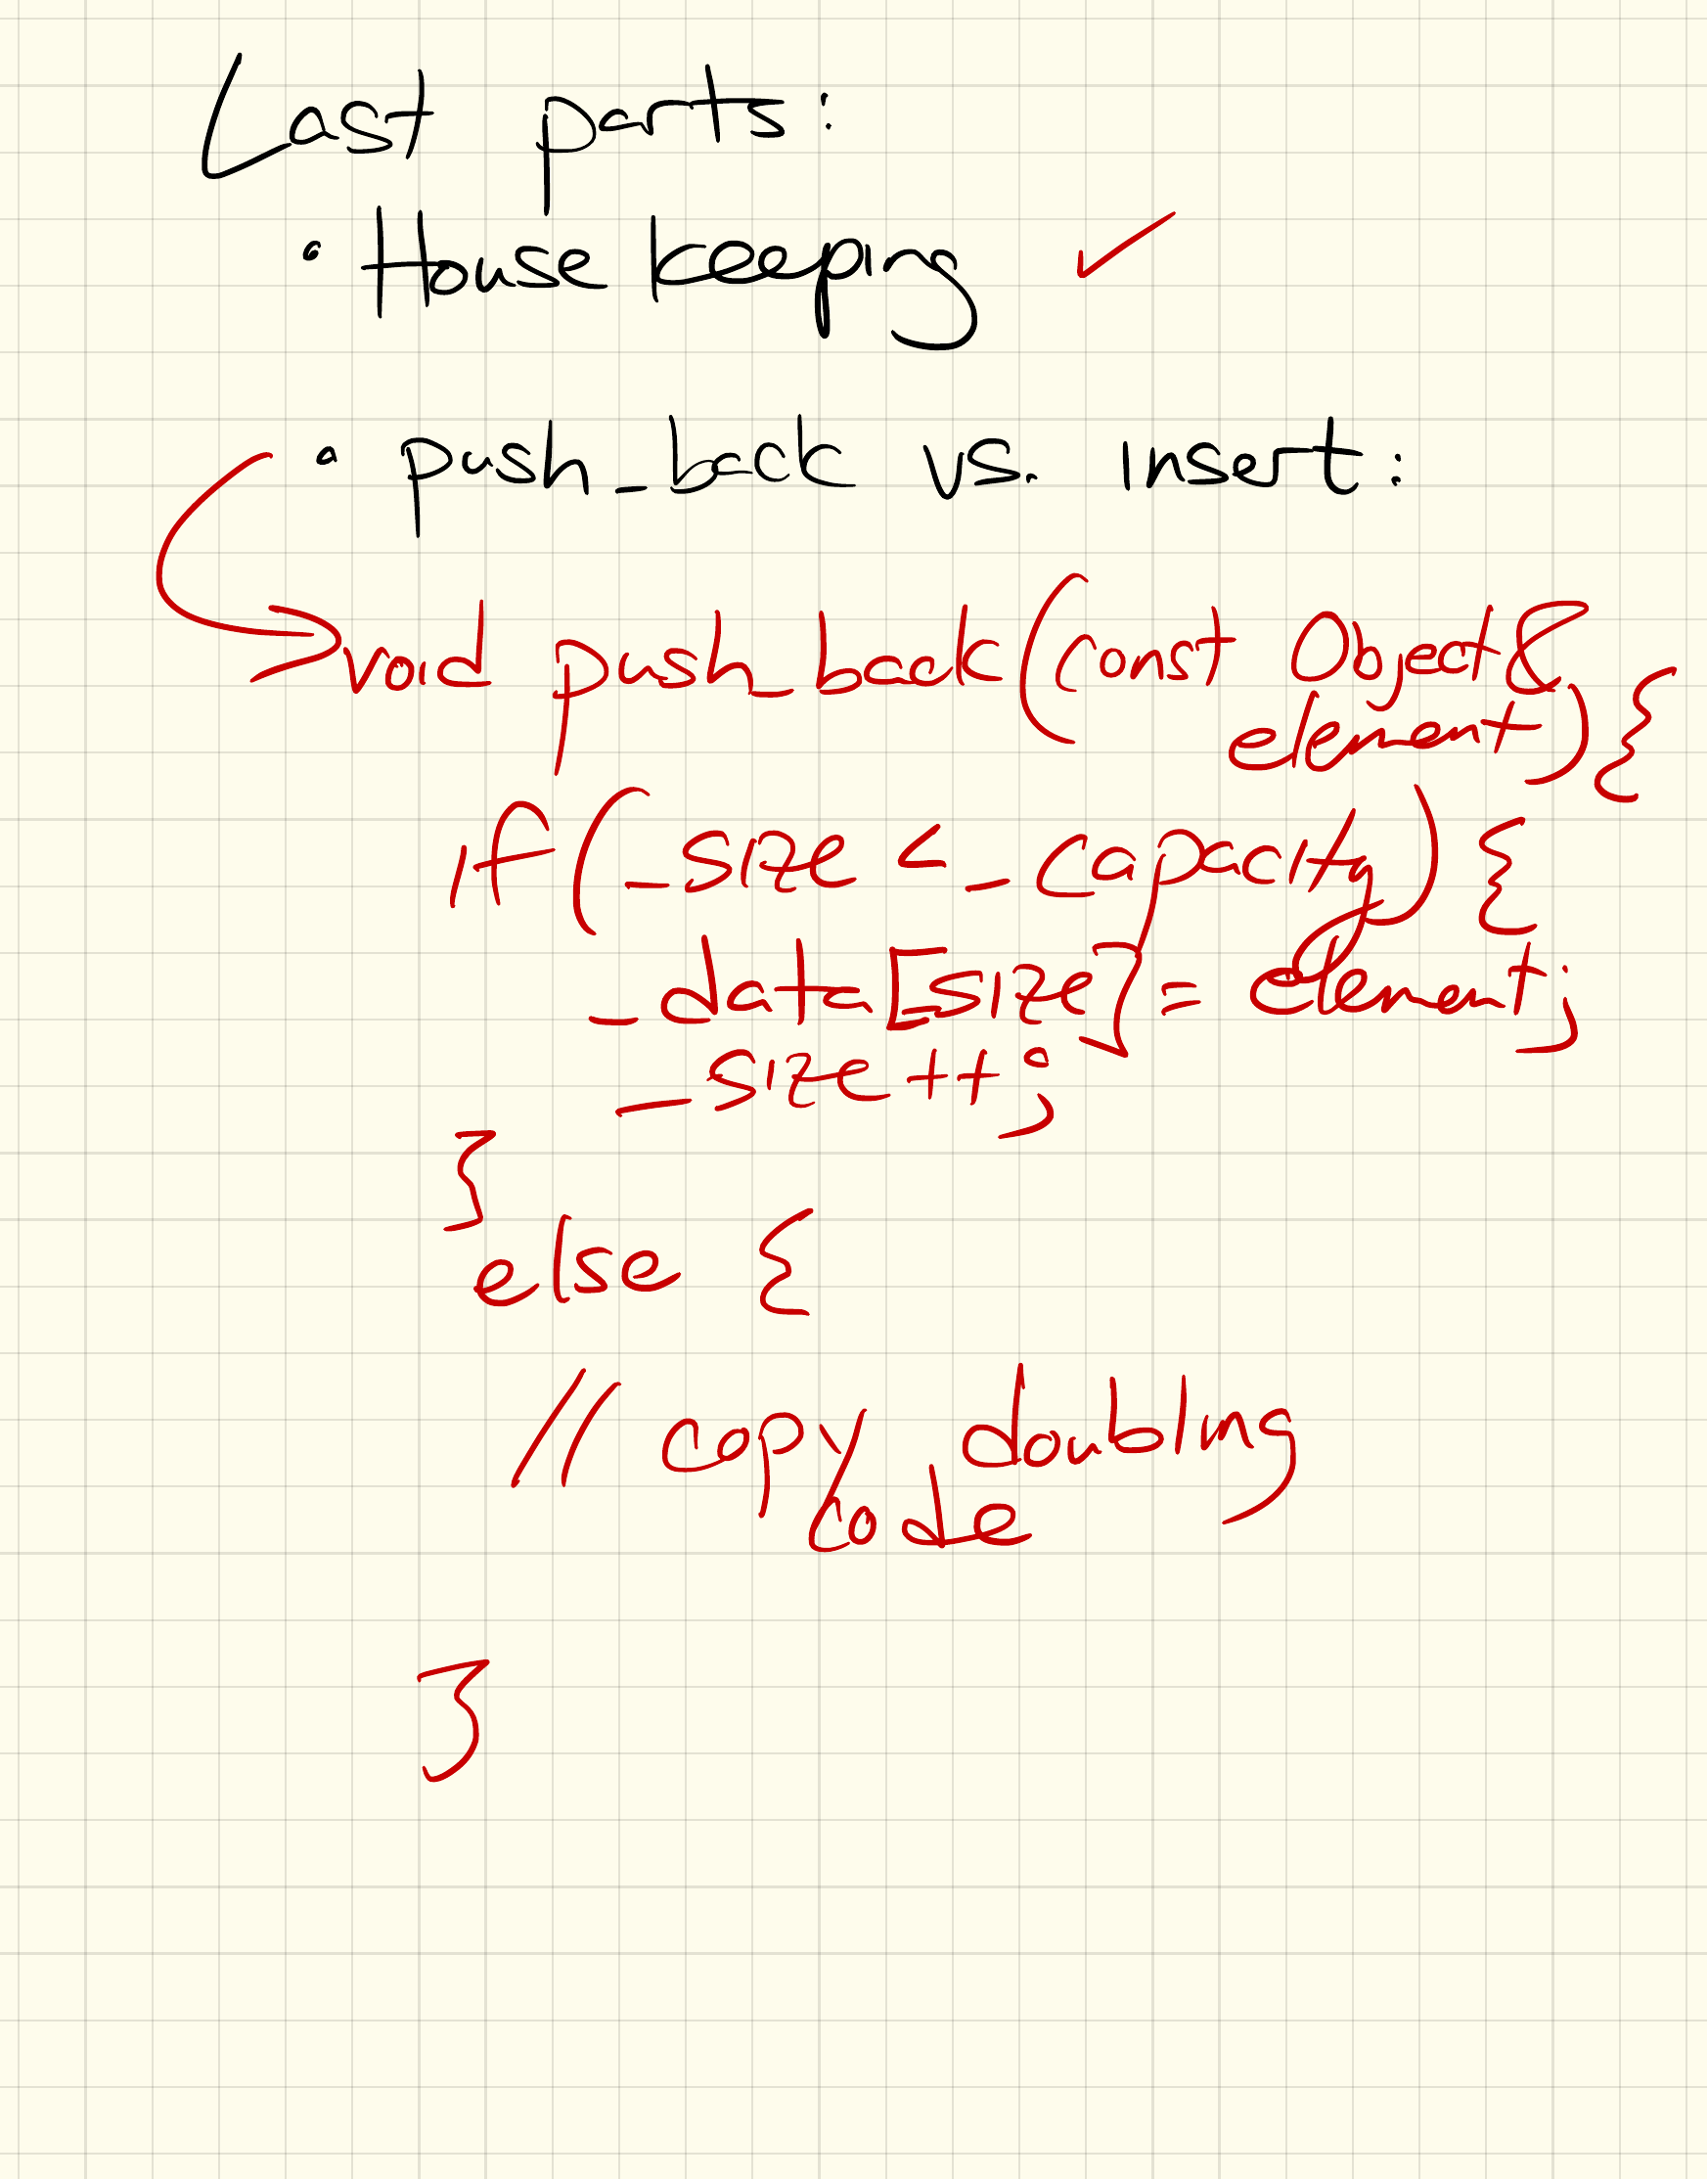 Last parts:
• Housekeeping ✓
• push_back vs. insert:
void push_back(const Object&
element) {
if(_size < _capacity) {
_data[_size] = element;
_size++;
}
else {
// copy doubling
code
}